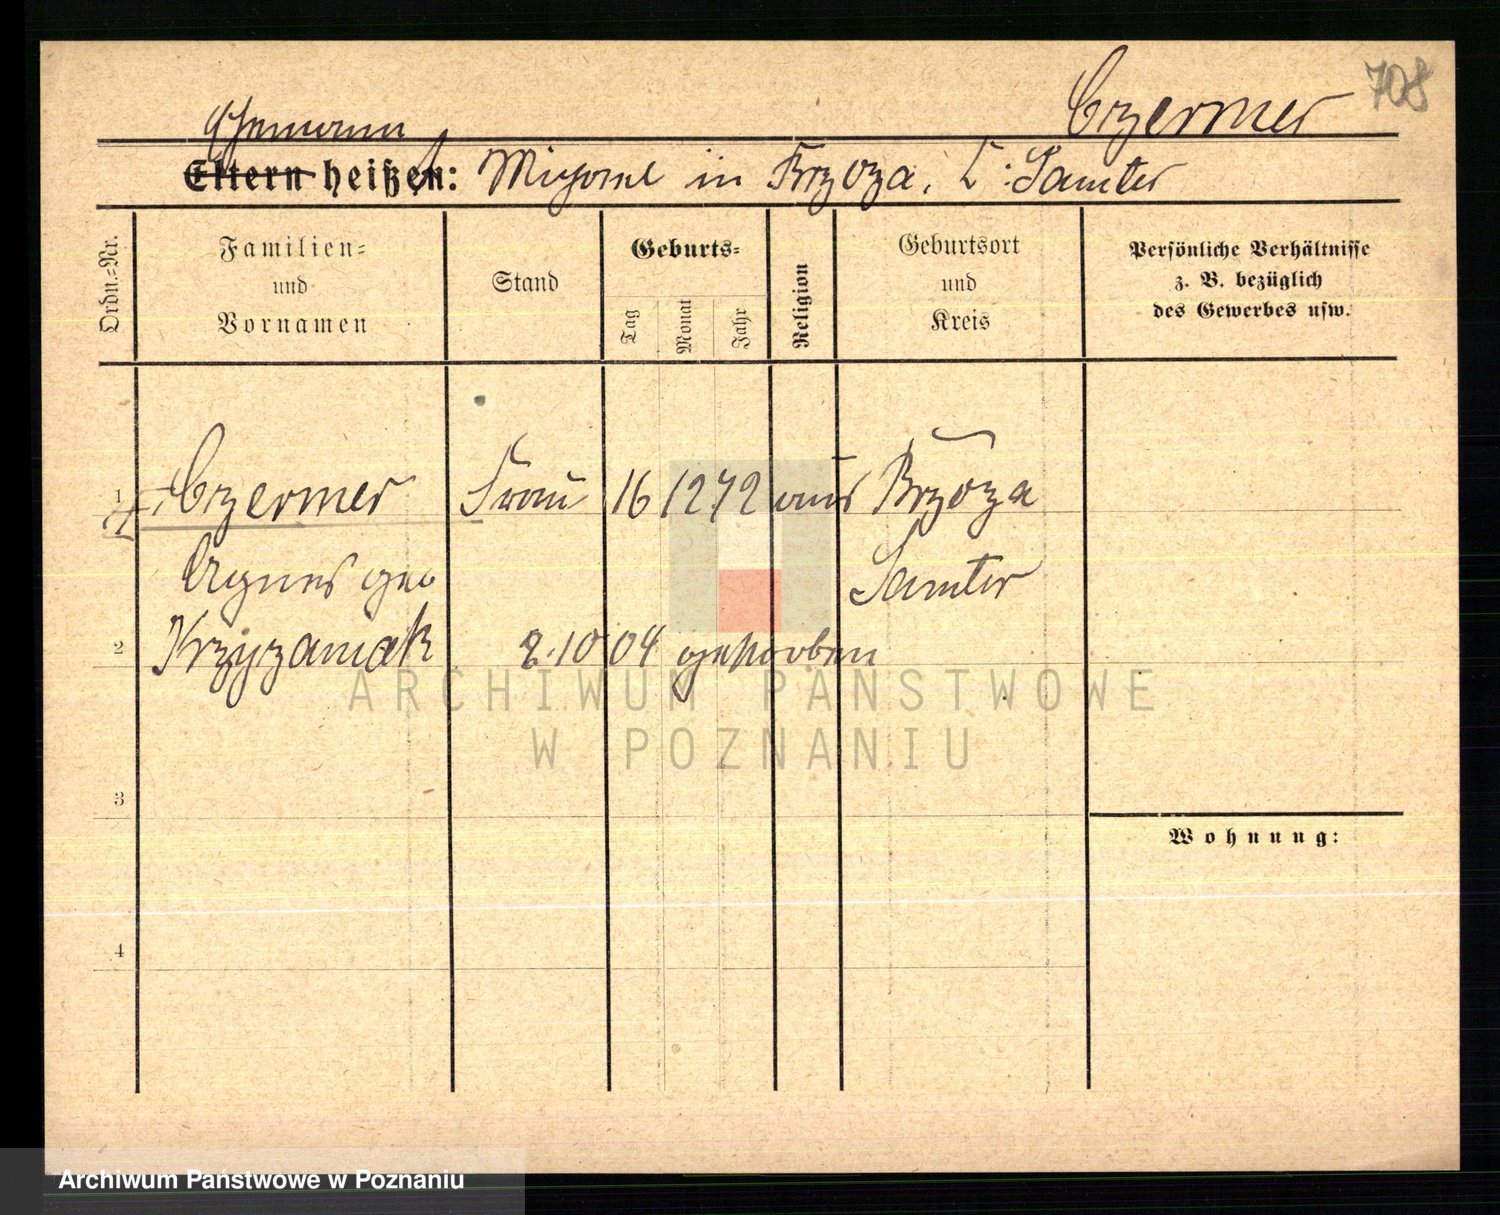 Czermer 708
Ehemann
Eltern heißen: Michael in Brzoza, K: Samter
Ordn.=Nr.
Familien=
und
Vornamen
Stand
Geburts=
Tag
Monat
Jahr
Religion
Geburtsort
und
Kreis
Persönliche Verhältnisse
z. B. bezüglich
des Gewerbes usw.
1 Czermer Frau 16 12 72 aus Brzoza
Agnes geb Samter
2 Krzyzaniak 2.10 04 gestorben
ARCHIWUM PAŃSTWOWE
W POZNANIU
3
Wohnung:
4
Archiwum Państwowe w Poznaniu